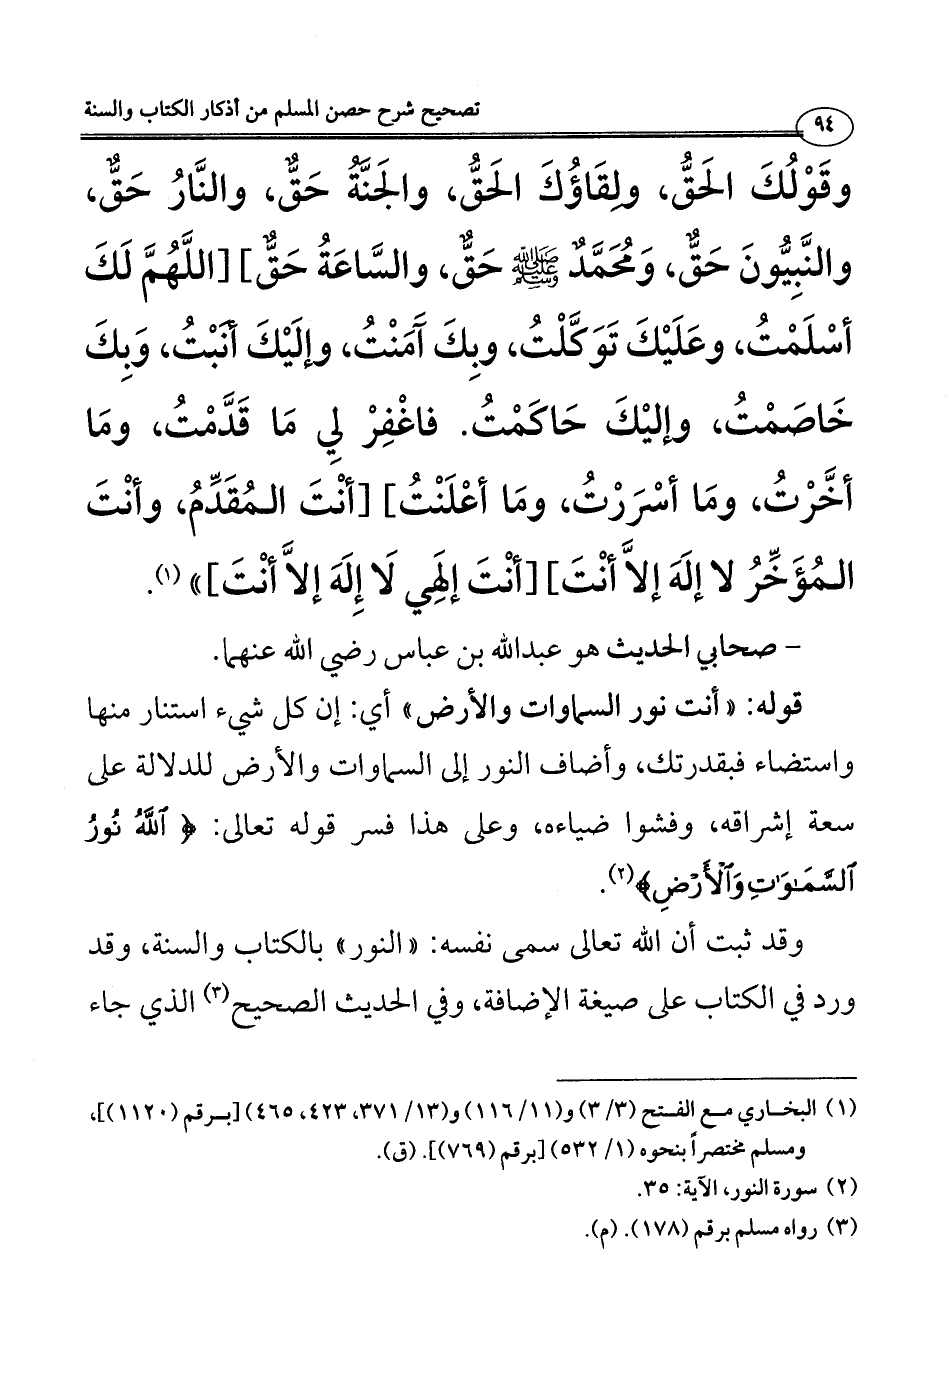 تصحيح شرح حصن المسلم من أذكار الكتاب والسنة
٩٤
وقَوْلُكَ الحَقُّ، ولِقَاؤُكَ الحَقُّ، والجَنَّةُ حَقٌّ، والنَّارُ حَقٌّ،
والنَّبِيُّونَ حَقٌّ، وَمُحَمَّدٌ ﷺ حَقٌّ، والسَّاعَةُ حَقٌّ] [اللَّهُمَّ لَكَ
أسْلَمْتُ، وعَلَيْكَ تَوَكَّلْتُ، وبِكَ آمَنْتُ، وإلَيْكَ أنَبْتُ، وَبِكَ
خَاصَمْتُ، وإلَيْكَ حَاكَمْتُ. فاغْفِرْ لِي مَا قَدَّمْتُ، ومَا
أخَّرْتُ، ومَا أسْرَرْتُ، ومَا أعْلَنْتُ] [أنْتَ المُقَدِّمُ، وأنْتَ
المُؤَخِّرُ لا إلَهَ إلاَّ أنْتَ] [أنْتَ إلَهِي لَا إِلَهَ إلاَّ أنْتَ]» (١).
– صحابي الحديث هو عبدالله بن عباس رضي الله عنهما.
قوله: «أنت نور السماوات والأرض» أي: إن كل شيء استنار منها
واستضاء فبقدرتك، وأضاف النور إلى السماوات والأرض للدلالة على
سعة إشراقه، وفشوا ضياءه، وعلى هذا فسر قوله تعالى: ﴿ ٱللَّهُ نُورُ
ٱلسَّمَـٰوَٰتِ وَٱلْأَرْضِ﴾(٢).
وقد ثبت أن الله تعالى سمى نفسه: «النور» بالكتاب والسنة، وقد
ورد في الكتاب على صيغة الإضافة، وفي الحديث الصحيح(٣) الذي جاء
(١) البخاري مع الفتح (٣/ ٣) و(١١/ ١١٦) و(١٣/ ٣٧١، ٤٢٣، ٤٦٥) [برقم (١١٢٠)]،
ومسلم مختصراً بنحوه (١/ ٥٣٢) [برقم (٧٦٩)]. (ق).
(٢) سورة النور، الآية: ٣٥.
(٣) رواه مسلم برقم (١٧٨). (م).